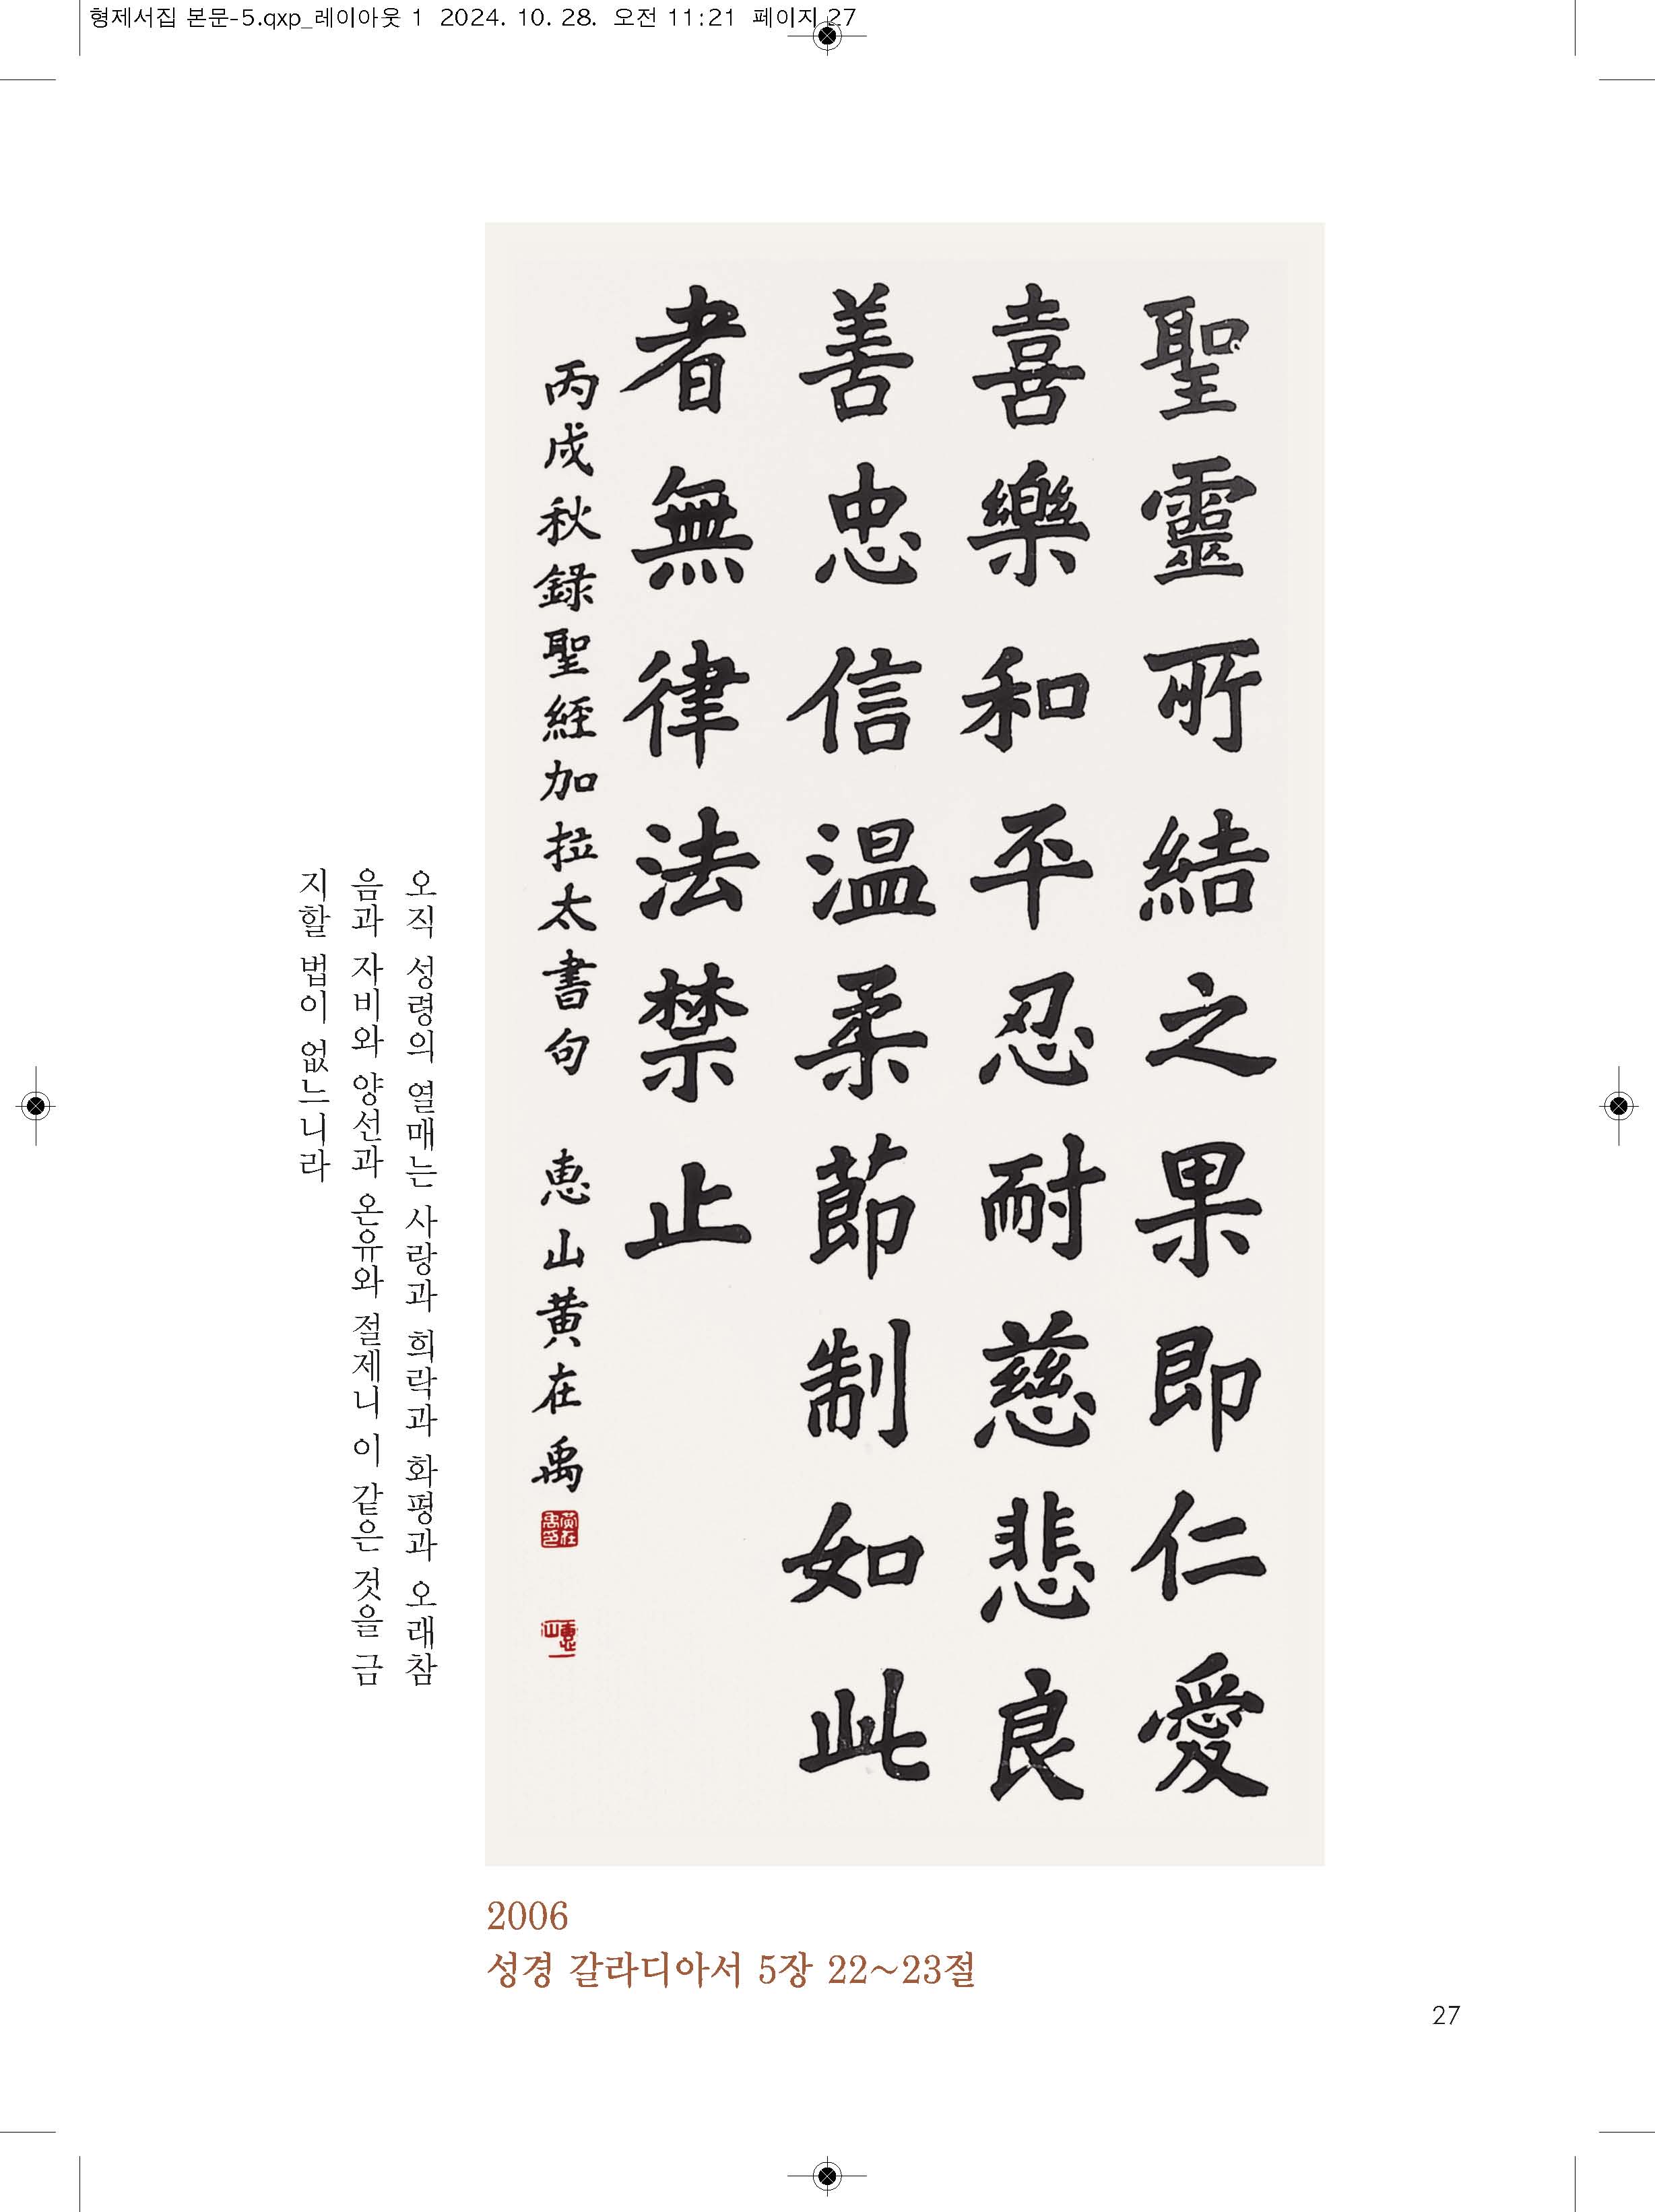 형제서집 본문-5.qxp_레이아웃 1 2024. 10. 28. 오전 11:21 페이지 27
聖靈所結之果即仁愛
喜樂和平忍耐慈悲良
善忠信温柔節制如此
者無律法禁止
丙戌秋錄聖經加拉太書句 惠山黃在禹
黃在禹印
惠山
오직 성령의 열매는 사랑과 희락과 화평과 오래참
음과 자비와 양선과 온유와 절제니 이 같은 것을 금
지할 법이 없느니라
2006
성경 갈라디아서 5장 22~23절
27